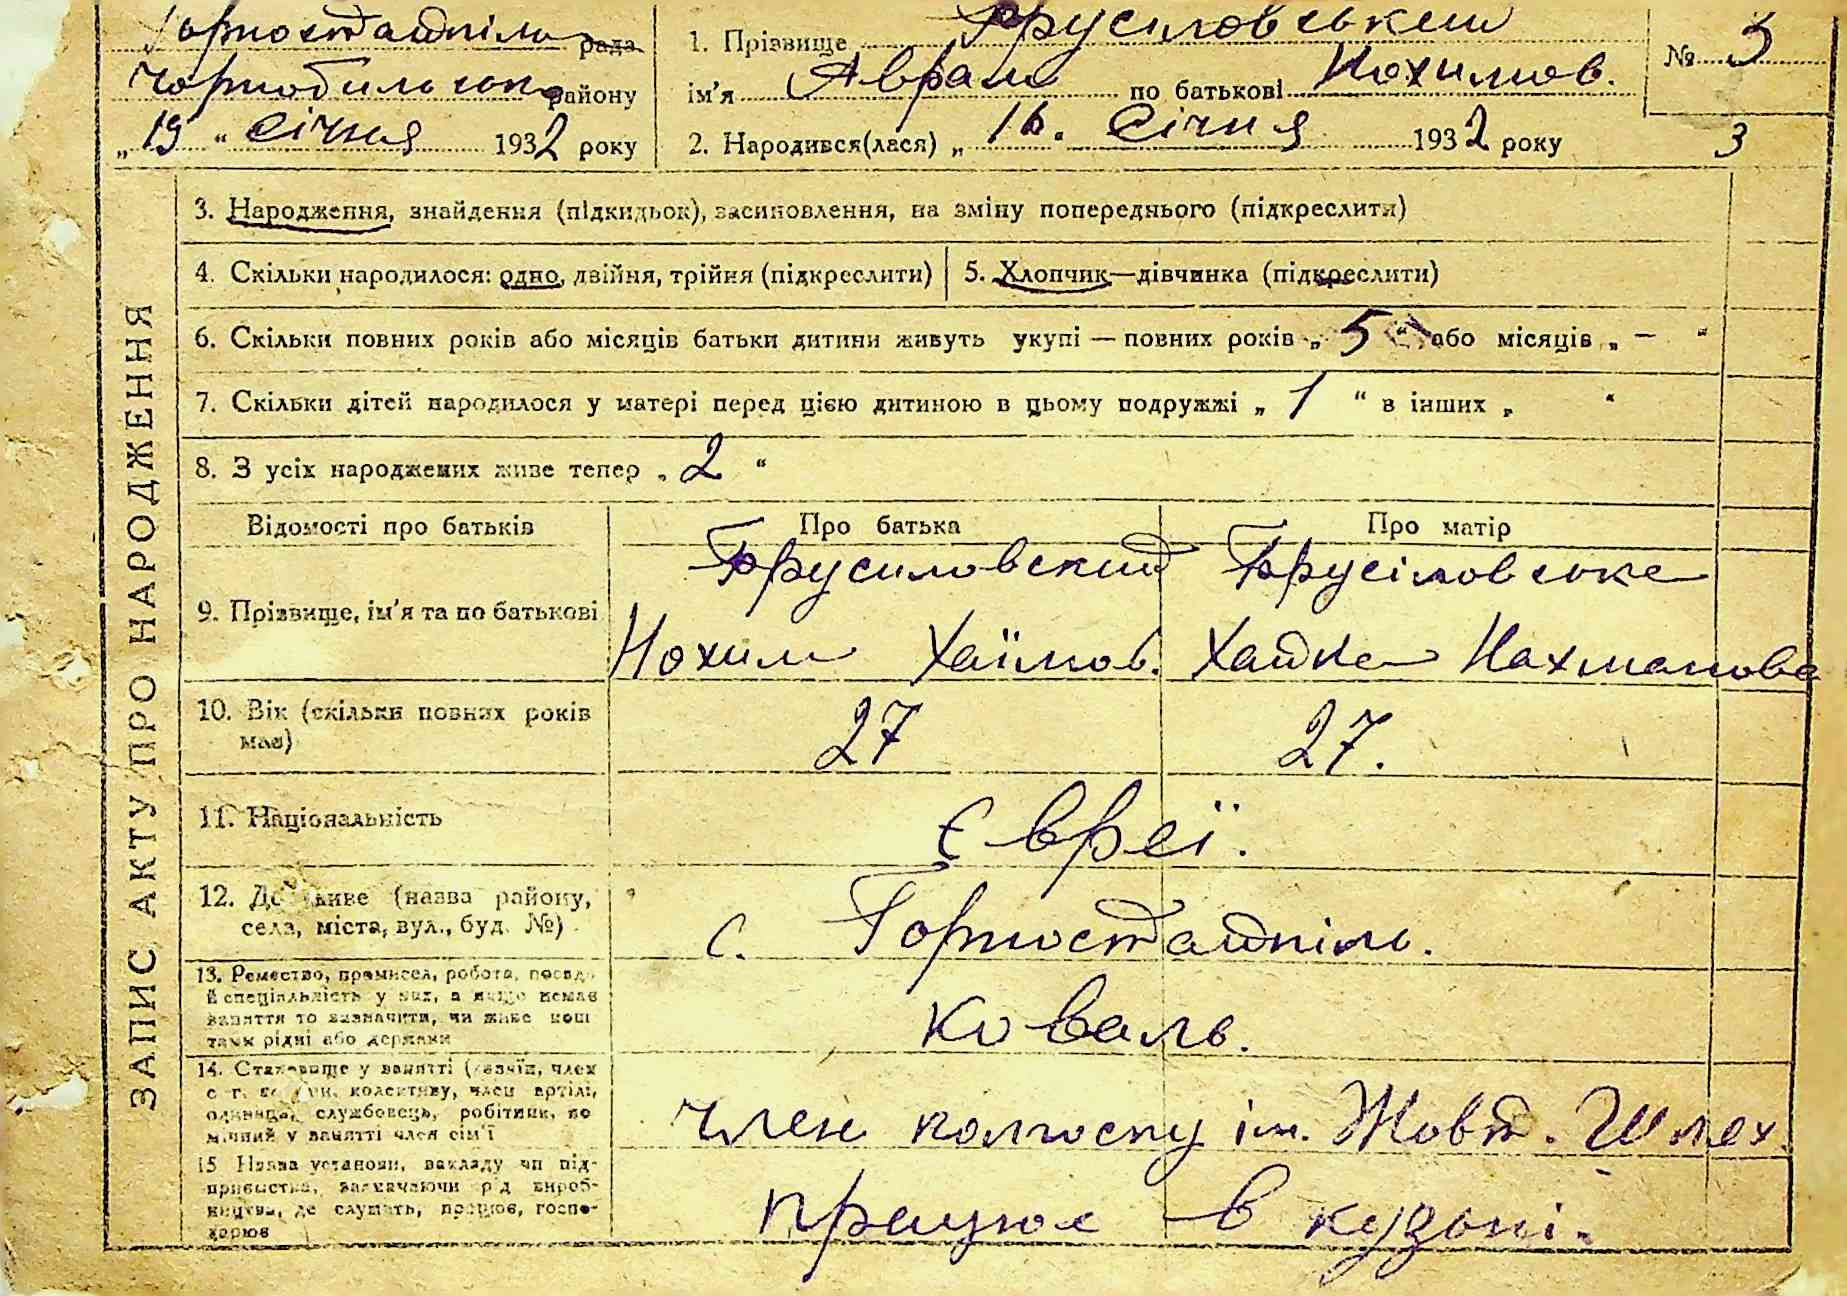 Горностайпіль рада
Чорнобильськ району
„19“ Січня 1932 року
1. Прізвище Брусіловський
ім'я Аврам по батькові Нохимов.
2. Народився(лася) „16. Січня 1932 року
№ 3
3
ЗАПИС АКТУ ПРО НАРОДЖЕННЯ
3. Народження, знайдення (підкидьок), засиновлення, на зміну попереднього (підкреслити)
4. Скільки народилося: одно, двійня, трійня (підкреслити)
5. Хлопчик—дівчинка (підкреслити)
6. Скільки повних років або місяців батьки дитини живуть укупі — повних років „5“ або місяців „ — “
7. Скільки дітей народилося у матері перед цією дитиною в цьому подружжі „ 1 “ в інших „ “
8. З усіх народжених живе тепер „ 2 “
Відомості про батьків Про батька Про матір
9. Прізвище, ім'я та по батькові
Брусиловский
Нохим Хаїмов.
Брусіловська
Хайка Нахманова
10. Вік (скільки повних років має)
27
27.
11. Національність
Євреї.
12. Де живе (назва району,
села, міста, вул., буд. №)
с. Горностайпіль.
13. Ремество, промисел, робота, посада
й спеціальність у них, а якщо немає
заняття то визначити, чи живе кош
тами рідні або держави
Коваль.
14. Становище у занятті (хазяїн, член
колективу, член артілі,
одинець, службовець, робітник, по
мічний у занятті член сім'ї
член колгоспу ім. Жовт. Шлях.
15 Назва установи, закладу чи під-
приємства, зазначаючи рід вироб-
ництва, де служить, працює, госпо-
дарює
працює в кузьні.